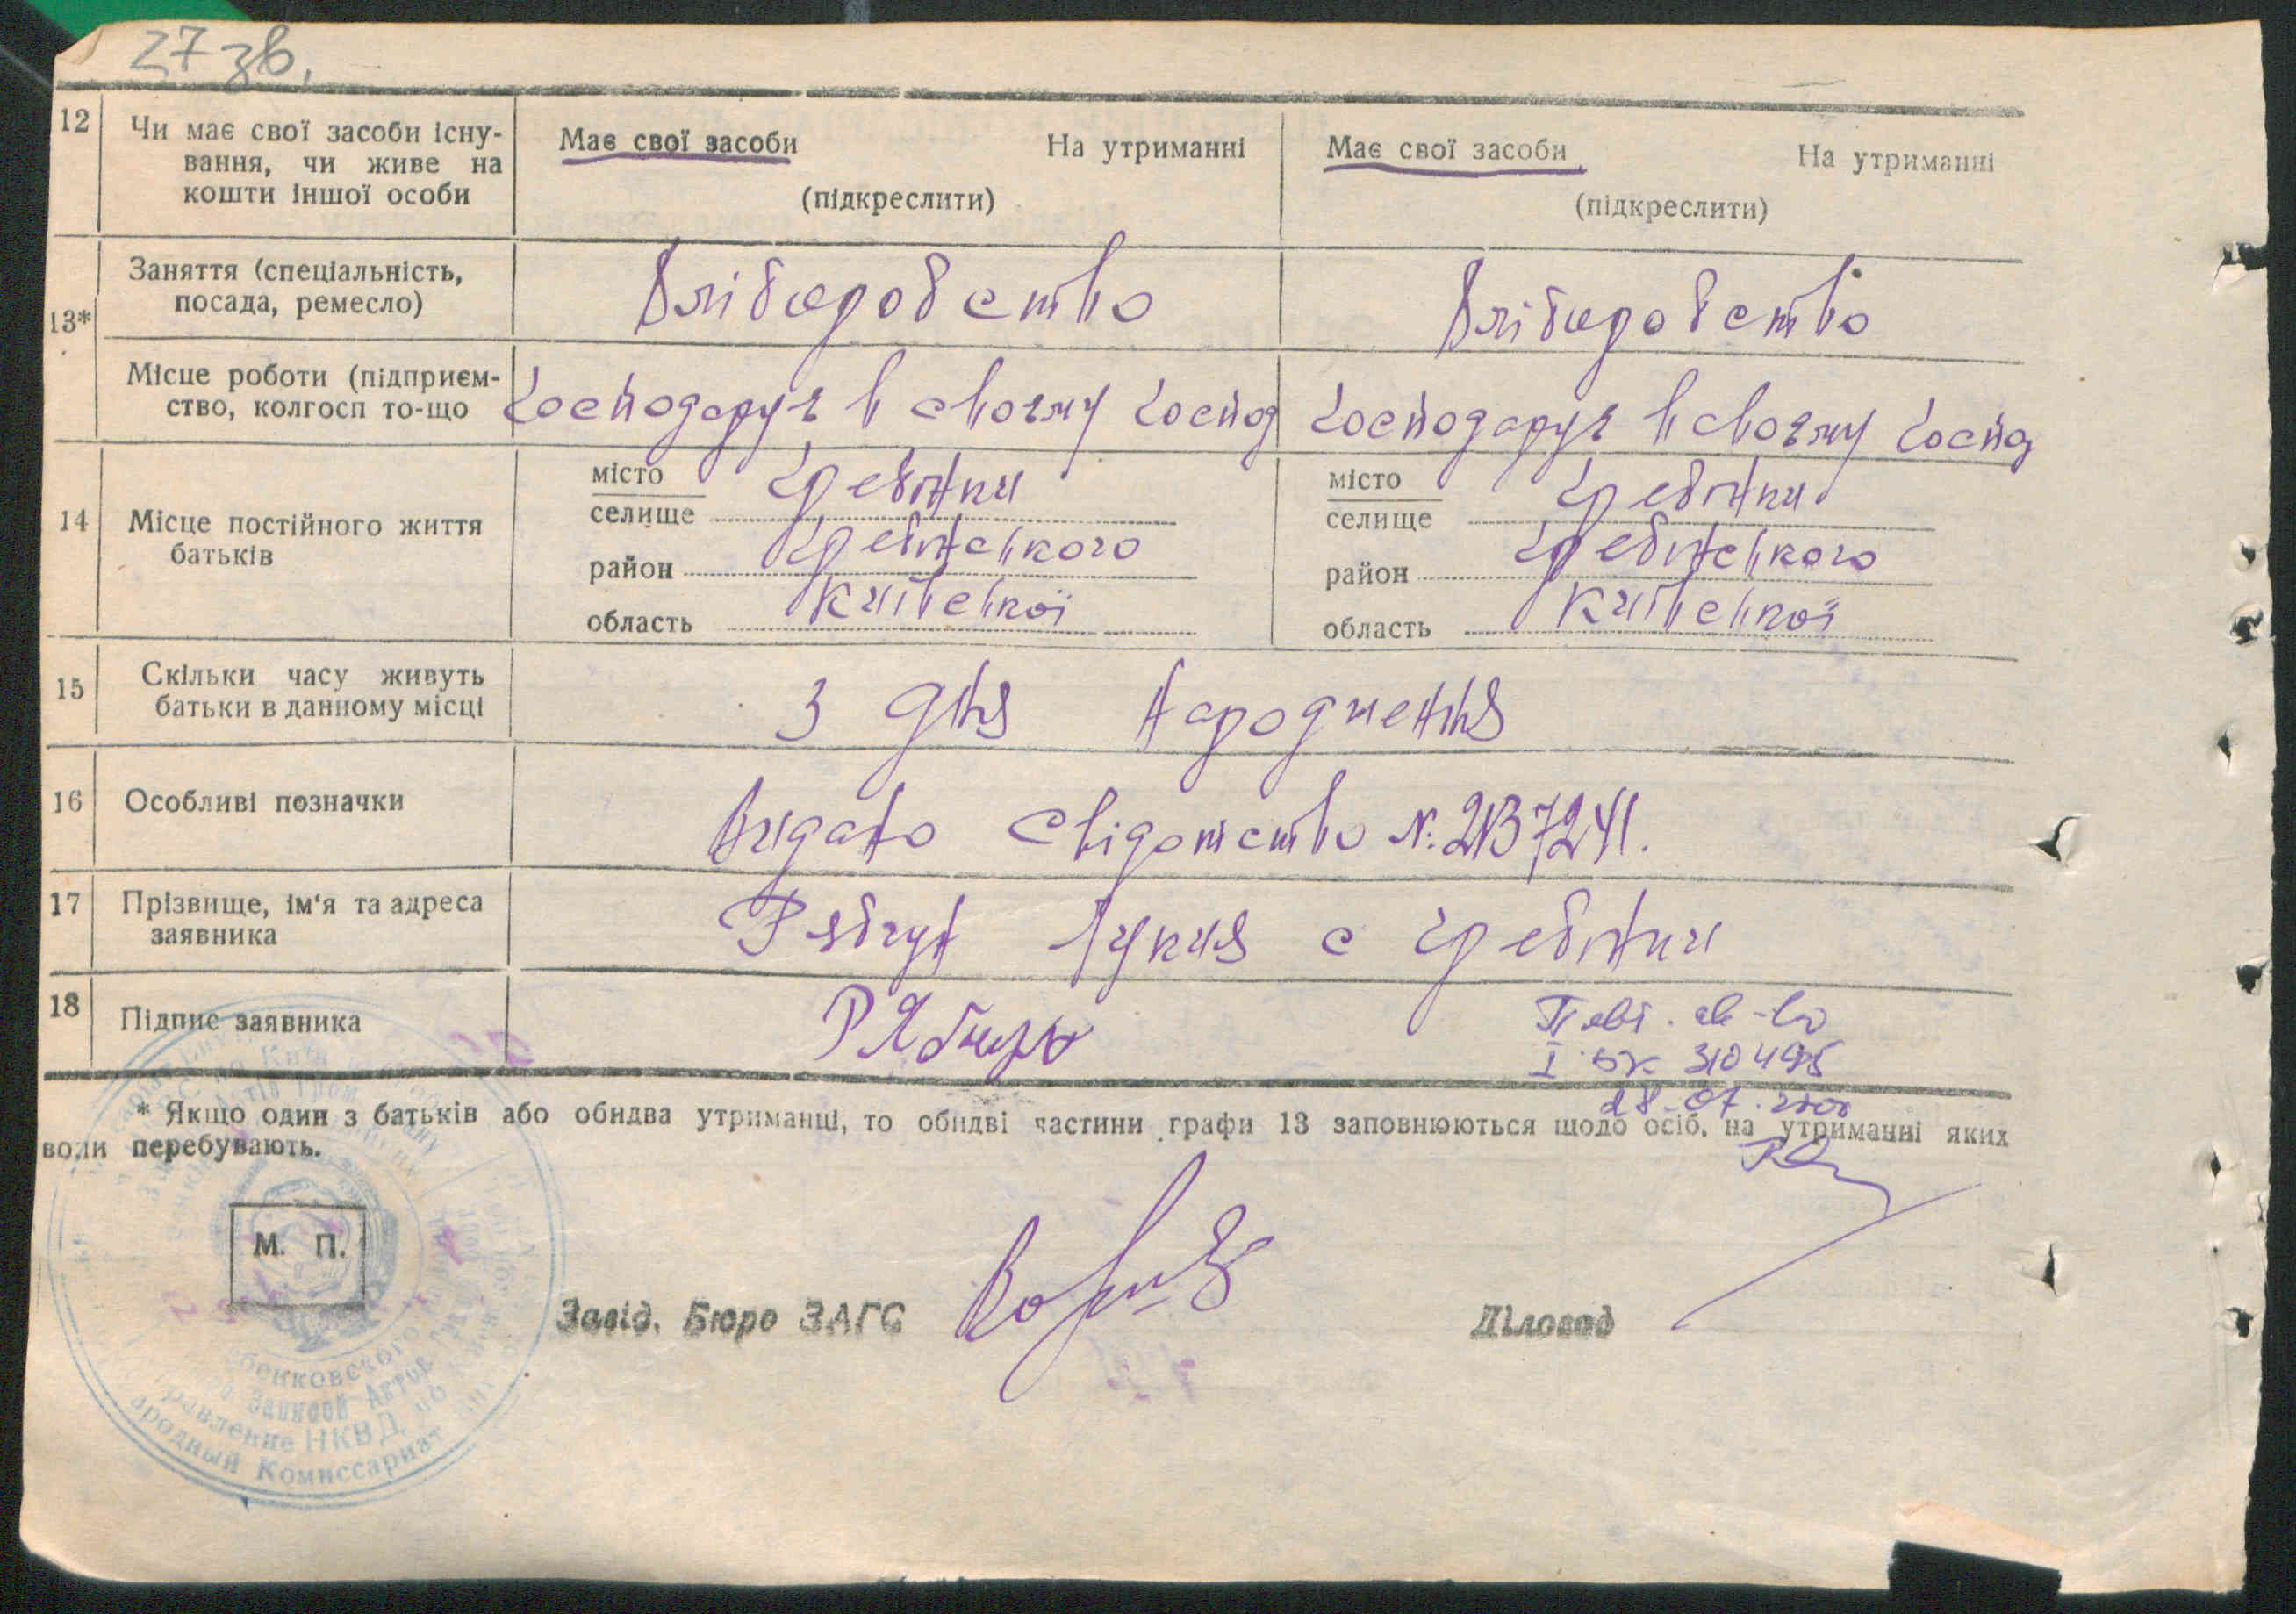 27 зв.
12 Чи має свої засоби існу-
вання, чи живе на
кошти іншої особи
Має свої засоби На утриманні
(підкреслити)
Має свої засоби На утриманні
(підкреслити)
13* Заняття (спеціальність,
посада, ремесло)
Хліборобство
Хліборобство
Місце роботи (підприєм-
ство, колгосп то-що
Господарує в своєму господ
Господарує в своєму господ
14 Місце постійного життя
батьків
місто
селище Гребінки
район Гребінського
область Київської
місто
селище Гребінки
район Гребінського
область Київської
15 Скільки часу живуть
батьки в данному місці
З дня народження
16 Особливі позначки
Видано свідотство №
17 Прізвище, ім'я та адреса
заявника
Рябчун Лукия с Гребінки
18 Підпис заявника
Повт. св-во
I БК 310495
28.07.
* Якщо один з батьків або обидва утриманці, то обидві частини графи 13 заповнюються щодо осіб, на утриманні яких
вони перебувають.
М. П.
Завід. Бюро ЗАГС
Діловод
Записей Актов
НКВД по
Комиссариат